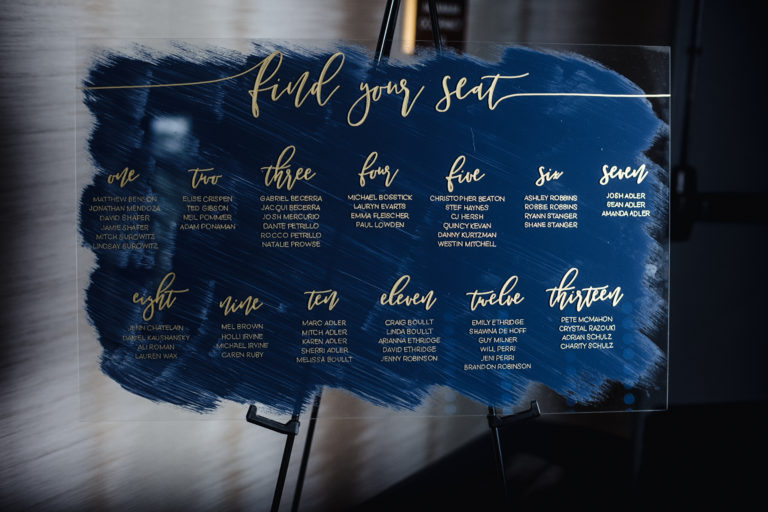 find your seat
one
MATTHEW BENSON
JONATHAN MENDOZA
DAVID SHAFER
JAMIE SHAFER
MITCH SUROWITZ
LINDSAY SUROWITZ
two
ELISE CRISPEN
TED GIBSON
NEIL POMMER
ADAM PONAMAN
three
GABRIEL BECERRA
JACQUI BECERRA
JOSH MERCURIO
DANTE PETRILLO
ROCCO PETRILLO
NATALIE PROWSE
four
MICHAEL BOSSTICK
LAURYN EVARTS
EMMA FLEISCHER
PAUL LOWDEN
five
CHRISTOPHER BEATON
STEF HAYNES
CJ HERSH
QUINCY KEVAN
DANNY KURTZMAN
WESTIN MITCHELL
six
ASHLEY ROBBINS
ROBBIE ROBBINS
RYANN STANGER
SHANE STANGER
seven
JOSH ADLER
SEAN ADLER
AMANDA ADLER
eight
JENN CHATELAIN
DANIEL KAUSHANSKY
ALI ROMAN
LAUREN WAX
nine
MEL BROWN
HOLLI IRVINE
MICHAEL IRVINE
CAREN RUBY
ten
MARC ADLER
MITCH ADLER
KAREN ADLER
SHERRI ADLER
MELISSA BOULLT
eleven
CRAIG BOULLT
LINDA BOULLT
ARIANNA ETHRIDGE
DAVID ETHRIDGE
JENNY ROBINSON
twelve
EMILY ETHRIDGE
SHAWNA DE HOFF
GUY MILNER
WILL PERRI
JENI PERRI
BRANDON ROBINSON
thirteen
PETE MCMAHON
CRYSTAL RAZOUKI
ADRIAN SCHULZ
CHARITY SCHULZ